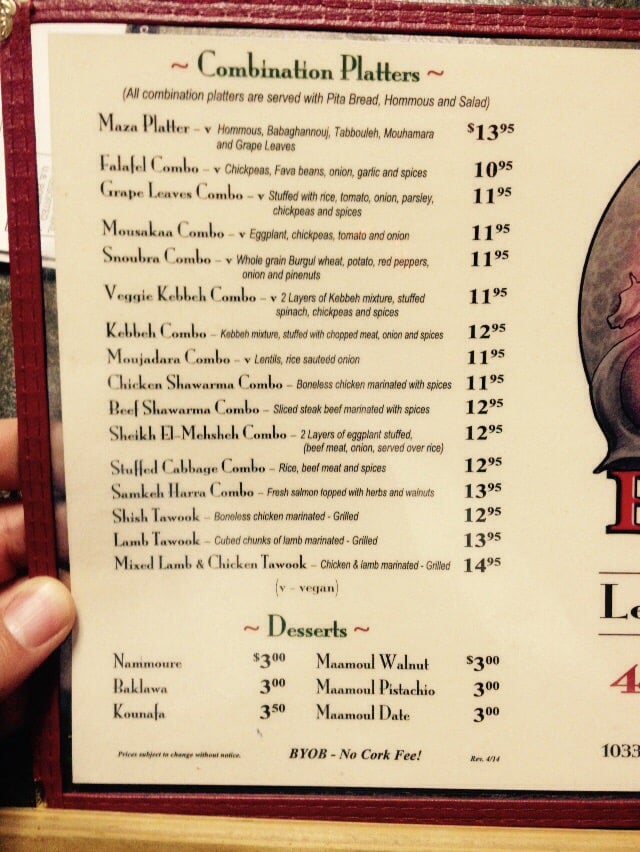 ~ Combination Platters ~
(All combination platters are served with Pita Bread, Hommous and Salad)
Maza Platter - v Hommous, Babaghannouj, Tabbouleh, Mouhamara $13.95
and Grape Leaves
Falafel Combo - v Chickpeas, Fava beans, onion, garlic and spices 10.95
Grape Leaves Combo - v Stuffed with rice, tomato, onion, parsley, 11.95
chickpeas and spices
Mousakaa Combo - v Eggplant, chickpeas, tomato and onion 11.95
Snoubra Combo - v Whole grain Burgul wheat, potato, red peppers, 11.95
onion and pinenuts
Veggie Kebbeh Combo - v 2 Layers of Kebbeh mixture, stuffed 11.95
spinach, chickpeas and spices
Kebbeh Combo - Kebbeh mixture, stuffed with chopped meat, onion and spices 12.95
Moujadara Combo - v Lentils, rice sauteéd onion 11.95
Chicken Shawarma Combo - Boneless chicken marinated with spices 11.95
Beef Shawarma Combo - Sliced steak beef marinated with spices 12.95
Sheikh El-Mehsheh Combo - 2 Layers of eggplant stuffed, 12.95
(beef meat, onion, served over rice)
Stuffed Cabbage Combo - Rice, beef meat and spices 12.95
Samkeh Harra Combo - Fresh salmon topped with herbs and walnuts 13.95
Shish Tawook - Boneless chicken marinated - Grilled 12.95
Lamb Tawook - Cubed chunks of lamb marinated - Grilled 13.95
Mixed Lamb & Chicken Tawook - Chicken & lamb marinated - Grilled 14.95
(v - vegan)
~ Desserts ~
Nammoure $3.00 Maamoul Walnut $3.00
Baklawa 3.00 Maamoul Pistachio 3.00
Kounafa 3.50 Maamoul Date 3.00
Prices subject to change without notice. BYOB - No Cork Fee! Rev. 4/14
L
4
1033